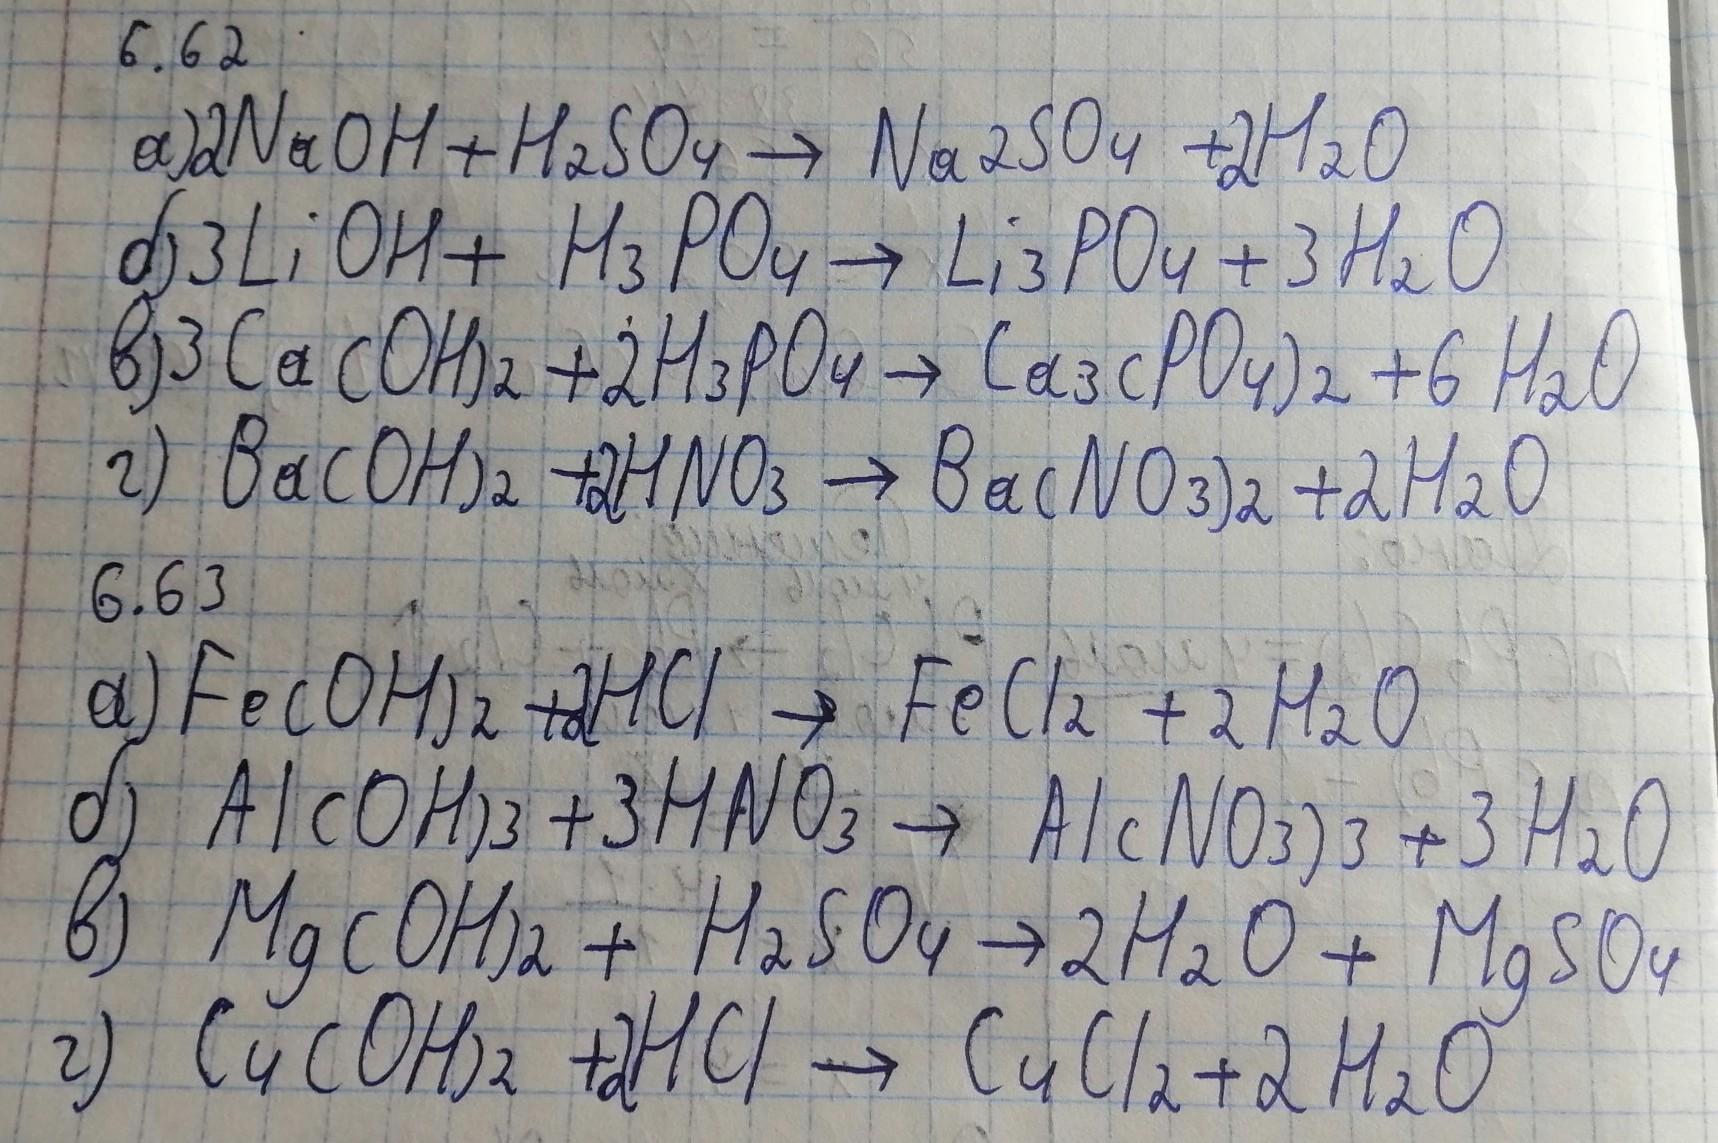 6.62
а) 2NaOH + H2SO4 → Na2SO4 + 2H2O
б) 3LiOH + H3PO4 → Li3PO4 + 3H2O
в) 3Ca(OH)2 + 2H3PO4 → Ca3(PO4)2 + 6H2O
г) Ba(OH)2 + 2HNO3 → Ba(NO3)2 + 2H2O
6.63
а) Fe(OH)2 + 2HCl → FeCl2 + 2H2O
б) Al(OH)3 + 3HNO3 → Al(NO3)3 + 3H2O
в) Mg(OH)2 + H2SO4 → 2H2O + MgSO4
г) Cu(OH)2 + 2HCl → CuCl2 + 2H2O